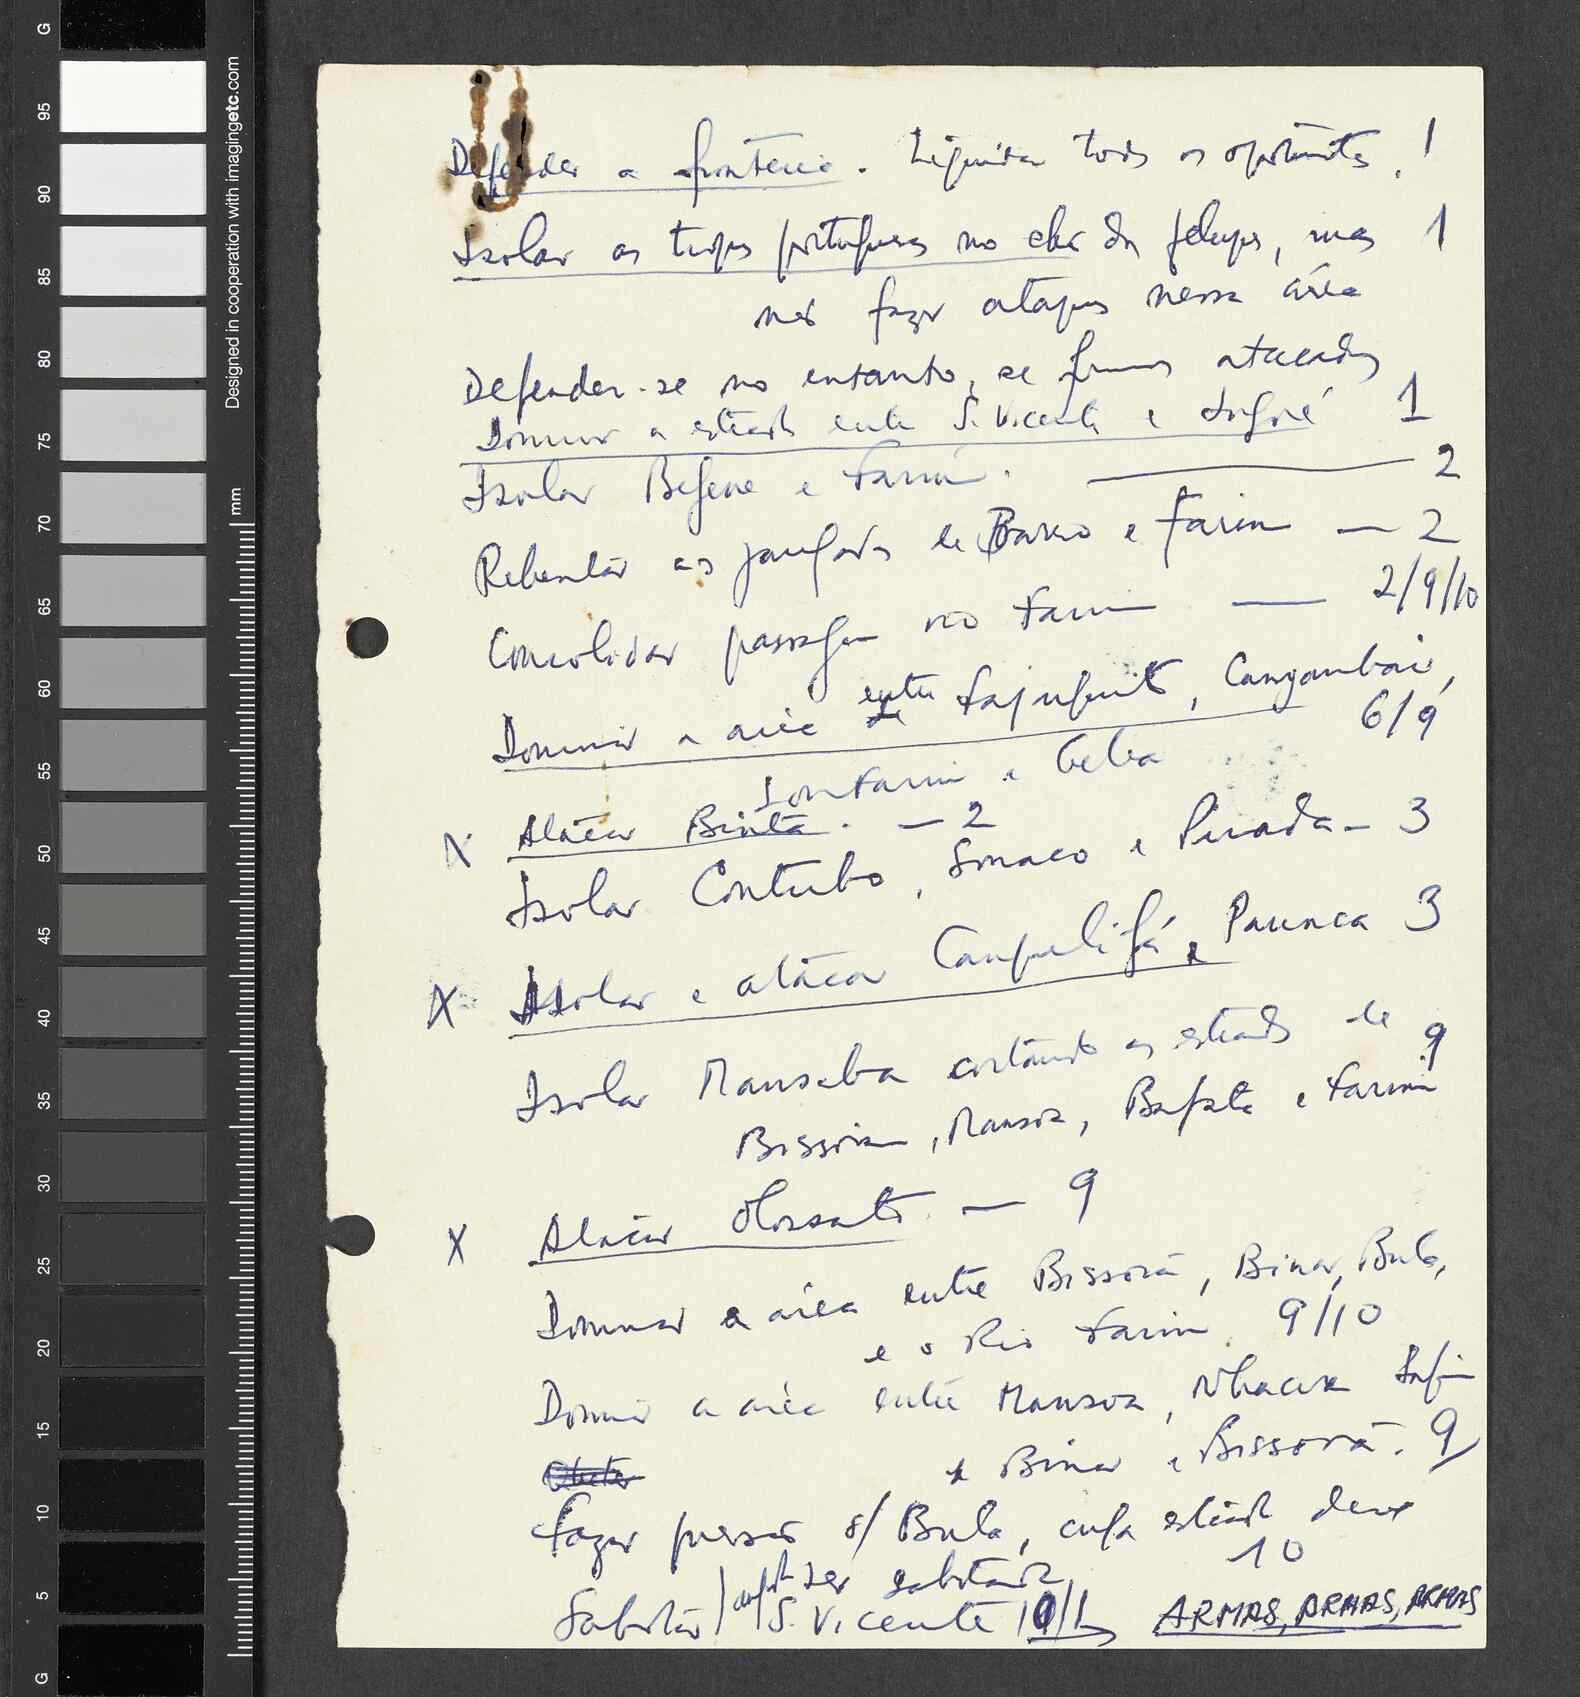 Defender a fronteira. Liquidar todos os oportunistas. 1
Isolar as tropas portuguesas no chão dos felupes, mas 1
não fazer ataques nessa área
Defender-se no entanto, se formos atacados
Dominar a estrada entre S. Vicente e Ingoré 1
Isolar Begene e Farim. — 2
Rebentar as jangadas de Barro e Farim — 2
Consolidar passagem rio Farim — 2/9/10
Dominar a área entre Fajonquito, Canjambari,
6/9
Farim e Geba
X Atacar Binta. — 2
Isolar Contubo, Sonaco e Pirada — 3
X Isolar e atacar Canquelifá e Paunca 3
Isolar Mansaba cortando as estradas de 9
Bissorã, Mansoa, Bafatá e Farim
X Atacar Olossato. — 9
Dominar a área entre Bissorã, Binar, Bula,
e o Rio Farim. 9/10
Dominar a área entre Mansoa, Nhacra Safim
e Binar e Bissorã. 9
Fazer pressão s/ Bula, cuja estrada deve
ser sabotada 10
Sabotar S. Vicente 10/1 ARMAS, ARMAS, ARMAS
Designed in cooperation with imagingetc.com
mm
G 95 90 85 80 75 70 65 60 55 50 45 40 35 30 25 20 15 10 5 G